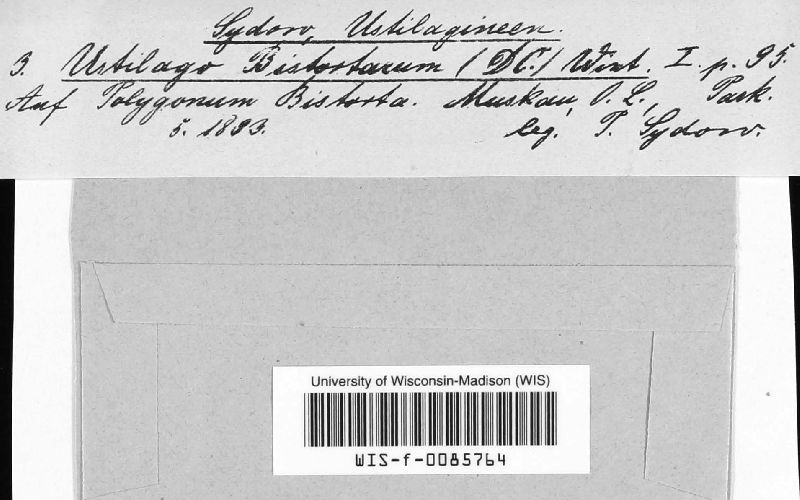 Sydow, Ustilagineen.
3. Ustilago Bistortarum (DC.) Wint. I. p. 95.
Auf Polygonum Bistorta. Muskau, O. L., Park.
5. 1893. leg. P. Sydow.
University of Wisconsin-Madison (WIS)
WIS-f-0085764